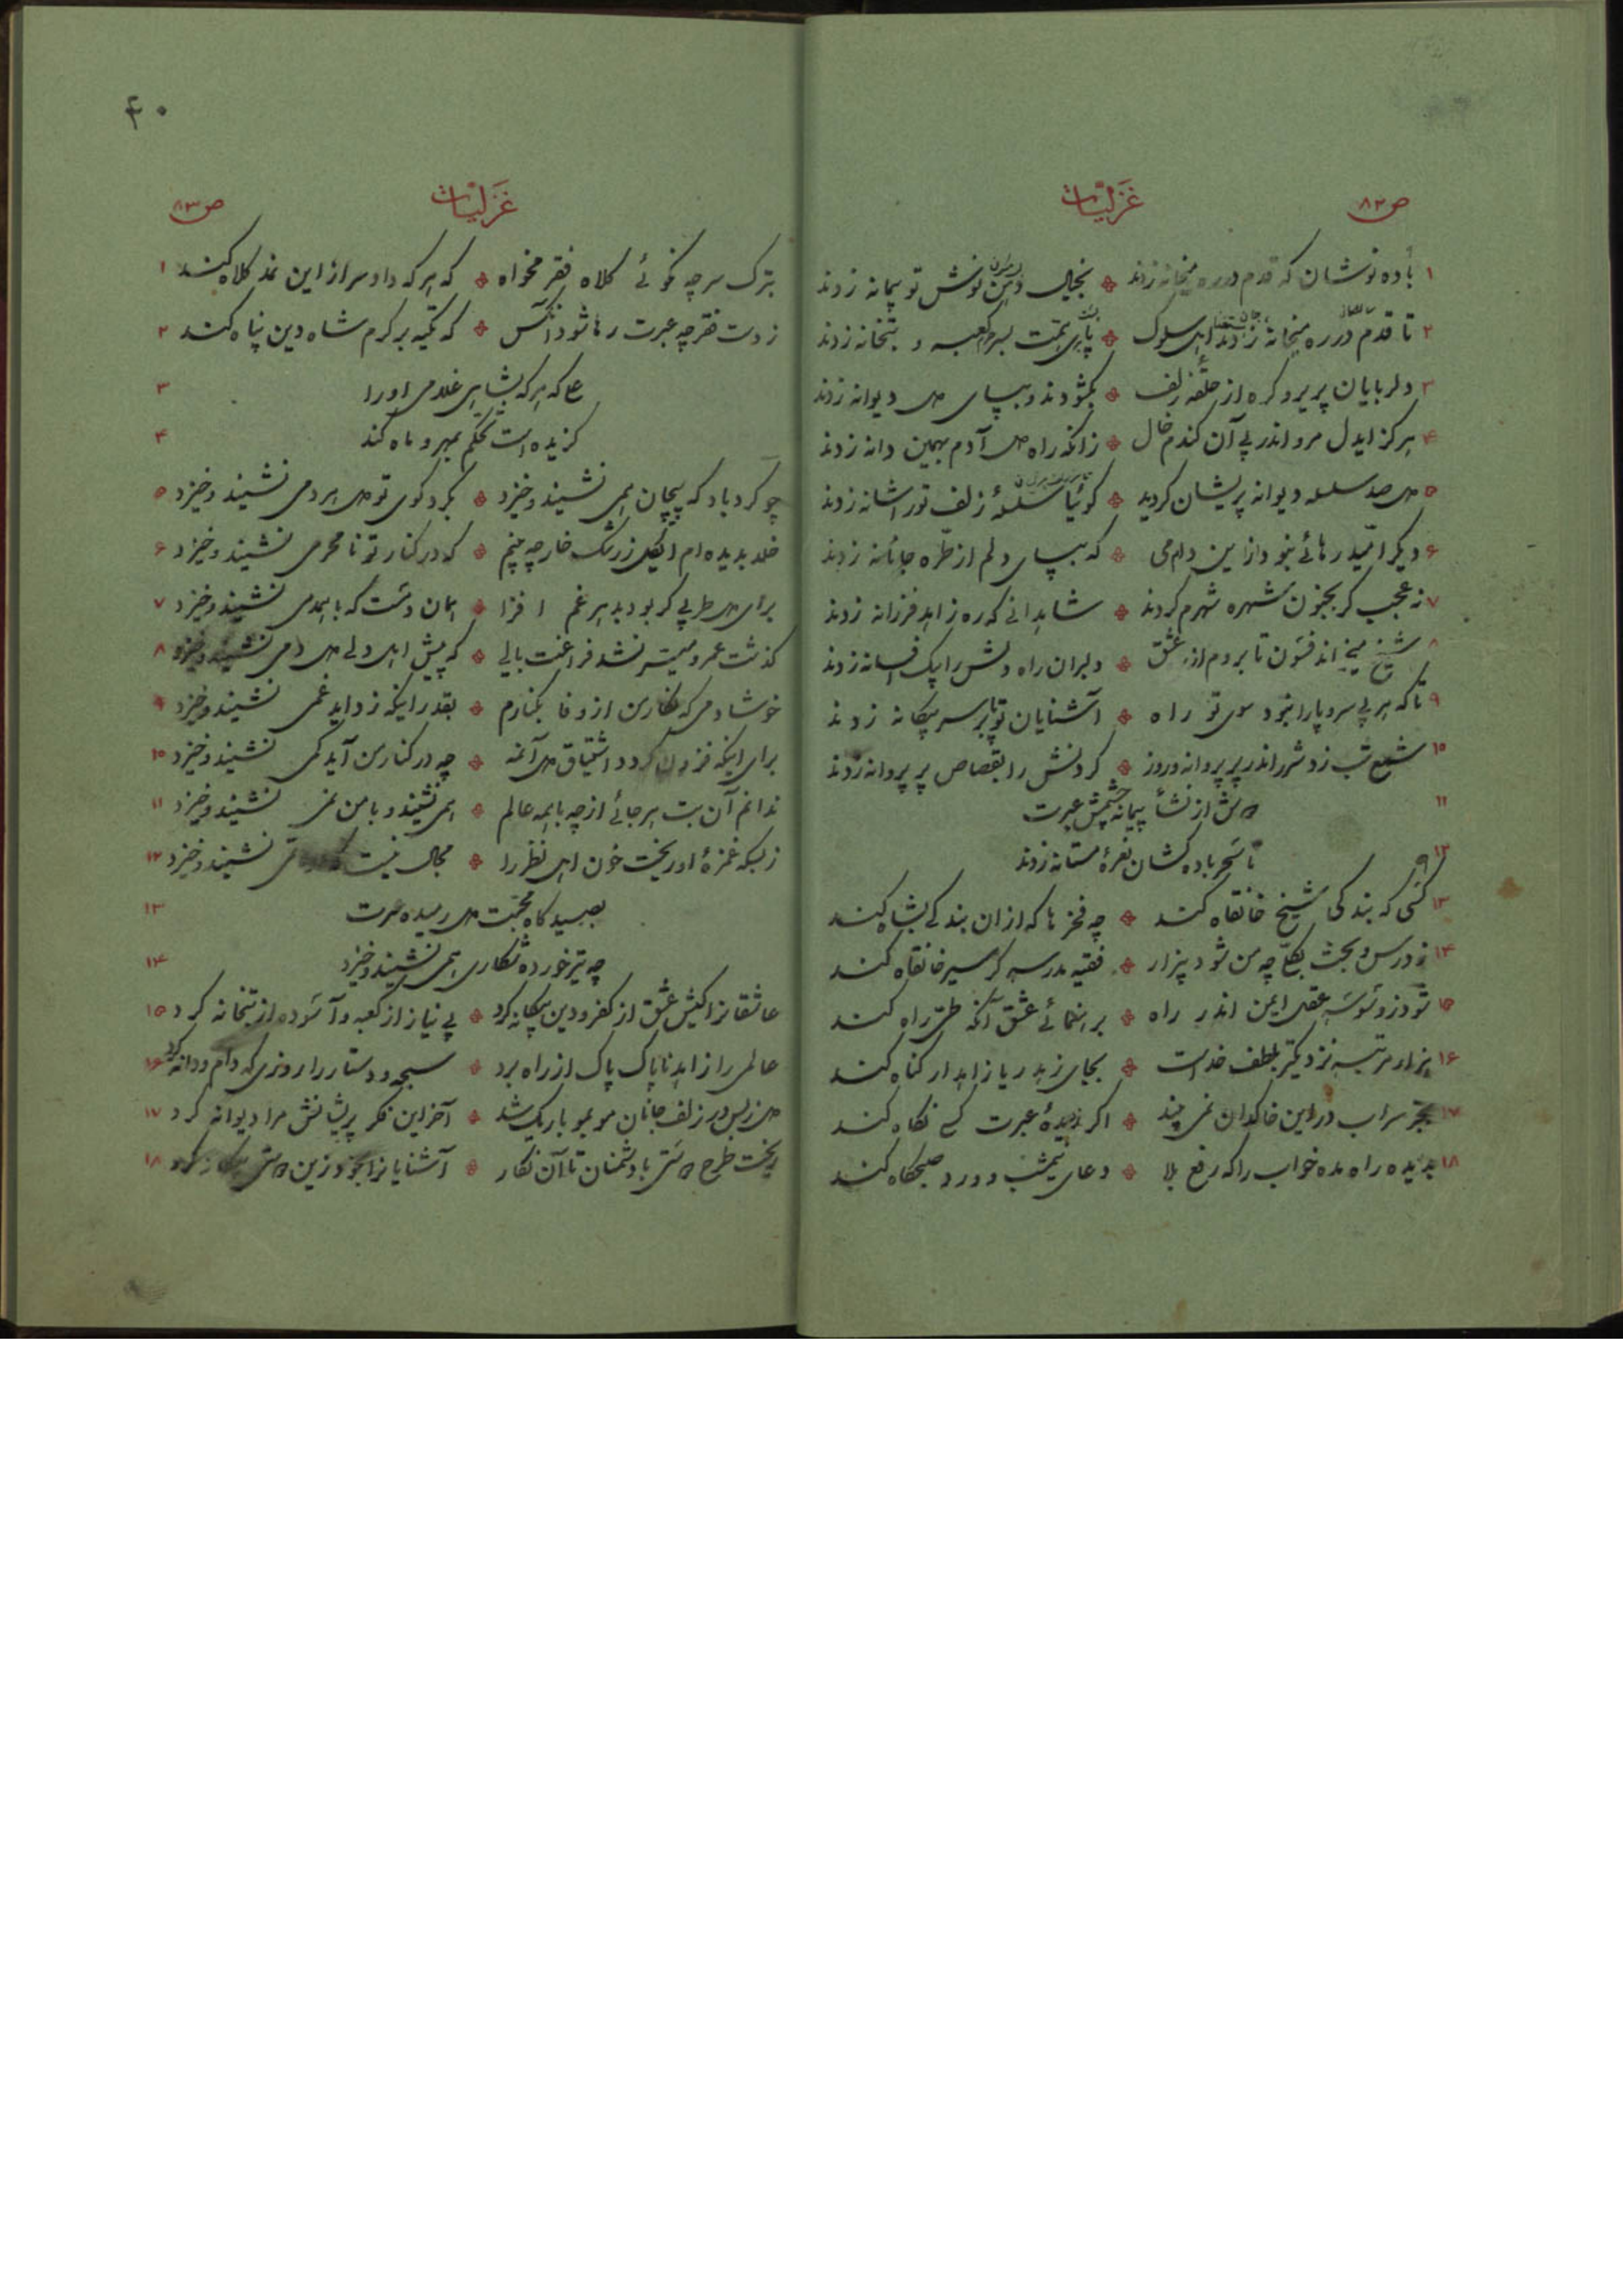 ص۸۲ غزلیات
۱ باده نوشان که قدم در ره میخانه زدند بخیال نوش تو پیمانه زدند
۲ تا قدم در ره میخانه زدند اهل سلوک پای همت بسر کعبه و بتخانه زدند
۳ دلربایان پریرو گره از حلقه زلف بگشودند و بپای دل دیوانه زدند
۴ هرگز ایدل مرو اندر پی آن گندم خال زانکه راه دل آدم بهمین دانه زدند
۵ دل صد سلسله دیوانه پریشان گردید گوئیا سلسلهٔ زلف تو را شانه زدند
۶ دیگر امید رهائی نبود از این دام که بپای دلم از طره جانانه زدند
۷ نه عجب گر بجنون شهره شهرم کردند شاهدانی که ره زاهد فرزانه زدند
۸ شیخ میخواند فسون تا بردم از ره عشق دلبران راه دلش را بیک افسانه زدند
۹ تا که هر بی سر و پا را نبود سوی تو راه آشنایان تو بر سر بیگانه زدند
۱۰ شمع شب زد شرر اندر پر پروانه و روز گردنش را بقصاص پر پروانه زدند
۱۱ از نشأ پیمانه چشمش عبرت
۱۲ تا سحر باده کشان نعرهٔ مستانه زدند
۱۳ کسی که بندگی شیخ خانقاه کند چه فخرها که از آن بندگی بشاه کند
۱۴ ز درس و بحث چه من شود بیزار فقیه مدرسه گر سیر خانقاه کند
۱۵ شود ز وسوسه عقل ایمن اندر راه برهنمائی عشق آنکه طی راه کند
۱۶ هزار مرتبه نزدیکتر بلطف خداست بجای زهد ریا زاهد ار گناه کند
۱۷ بجز سراب در این خاکدان نمی بیند اگر بدیدهٔ عبرت کسی نگاه کند
۱۸ بدیده راه مده خواب را که رفع بلا دعای نیمشب و ورد صبحگاه کند
۴۰
غزلیات ص۸۳
بترک سر چه نگوئی کلاه فقر مخواه که هر که داد سر از این نمد کلاه کند ۱
ز دست فقر چه عبرت رها شود آنکس که تکیه بر کرم شاه دین پناه کند ۲
که هر که بشاهی غلامی او را ۳
گزیده است تحکم بمهر و ماه کند ۴
چو گردباد که پیچان همی نشیند و خیزد بگرد کوی تو دل هر دمی نشیند و خیزد ۵
خلد بدیده ام ایگل ز رشک خار چه بینم که در کنار تو نامحرمی نشیند و خیزد ۶
برای دل طربی گر بود بدهر غم افزا همان دمست که با همدمی نشیند و خیزد ۷
گذشت عمر و میسر نشد فراغت بالی که پیش اهل دلی دل دمی نشیند و خیزد ۸
خوشا دمی که نگار من از وفا بکنارم بقدر اینکه زداید غمی نشیند و خیزد ۹
برای اینکه فزون گردد اشتیاق من آنمه چه در کنار من آید کمی نشیند و خیزد ۱۰
ندانم آن بت هر جائی از چه با همه عالم همی نشیند و با من نمی نشیند و خیزد ۱۱
ز بسکه غمزهٔ او ریخت خون اهل نظر را مجال نیست نشیند و خیزد ۱۲
بصیدگاه محبت دل رمیده عبرت ۱۳
چه تیر خورده شکاری همی نشیند و خیزد ۱۴
عاشقانرا کیش عشق از کفر و دین بیگانه کرد بی نیاز از کعبه و آسوده از بتخانه کرد ۱۵
عالمی را زاهد ناپاک پاک از راه برد سبحه و دستار را روزی که دام و دانه کرد ۱۶
دل ز بس در زلف جانان مو بمو باریک شد آخر این فکر پریشانش مرا دیوانه کرد ۱۷
ریخت طرح دوستی با دشمنان تا آن نگار آشنایانرا ز خود زین دوستی بیگانه کرد ۱۸